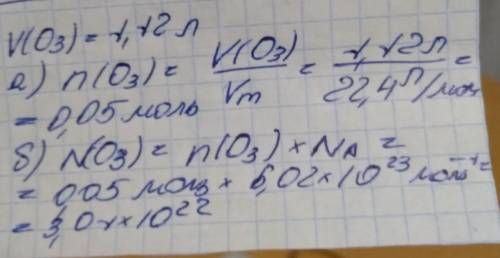 V(O₃) = 1,12 л
а) n(O₃) = V(O₃) / Vm = 1,12 л / 22,4 л/моль =
= 0,05 моль
б) N(O₃) = n(O₃) × NA =
= 0,05 моль × 6,02 × 10²³ моль⁻¹ =
= 3,01 × 10²²